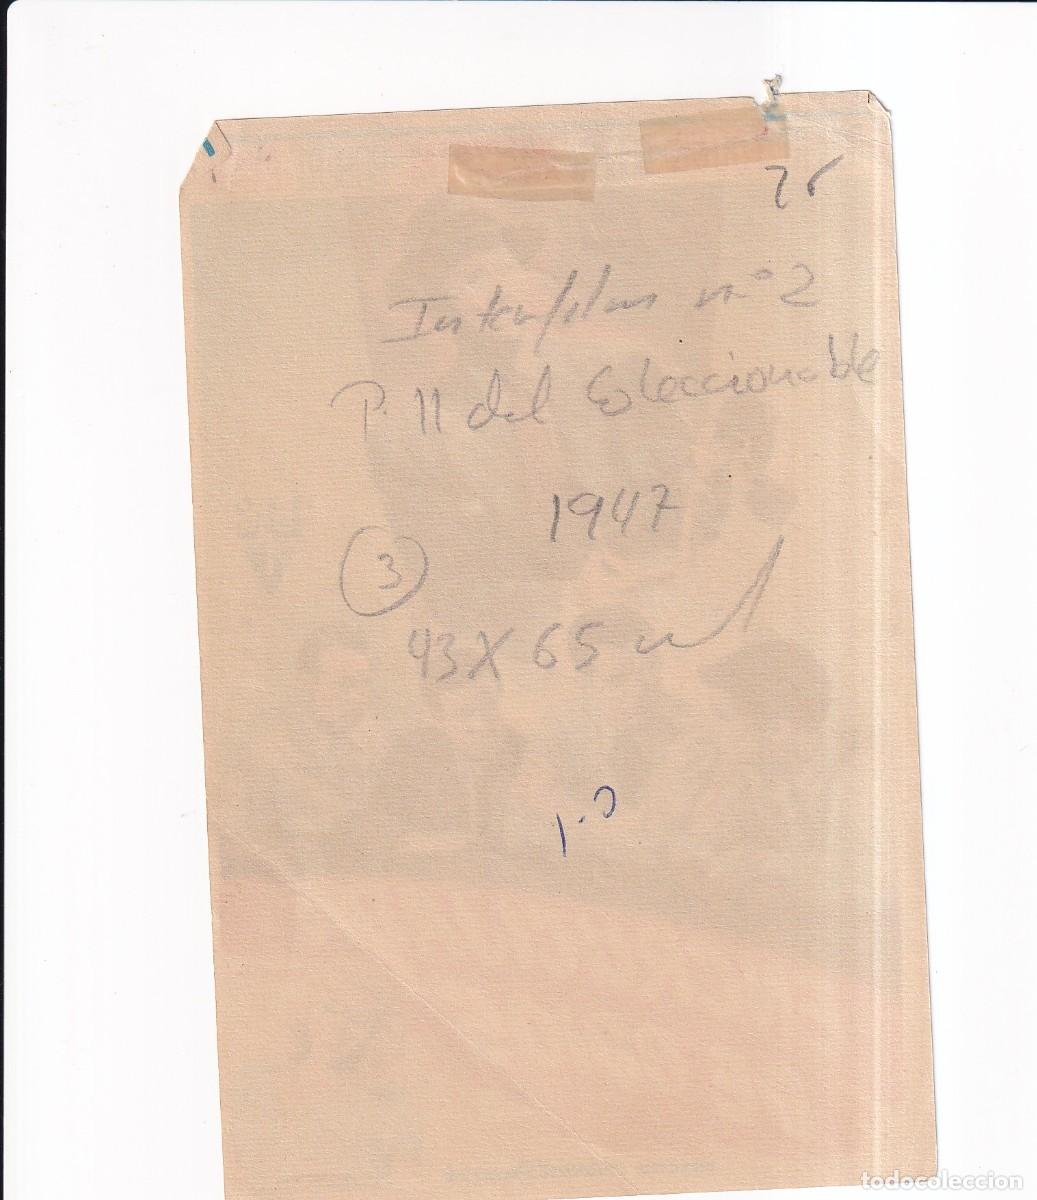 76
Interfilms nº 2
P. 11 del Coleccionable
1947
3
43 X 65
1.0
todocoleccion